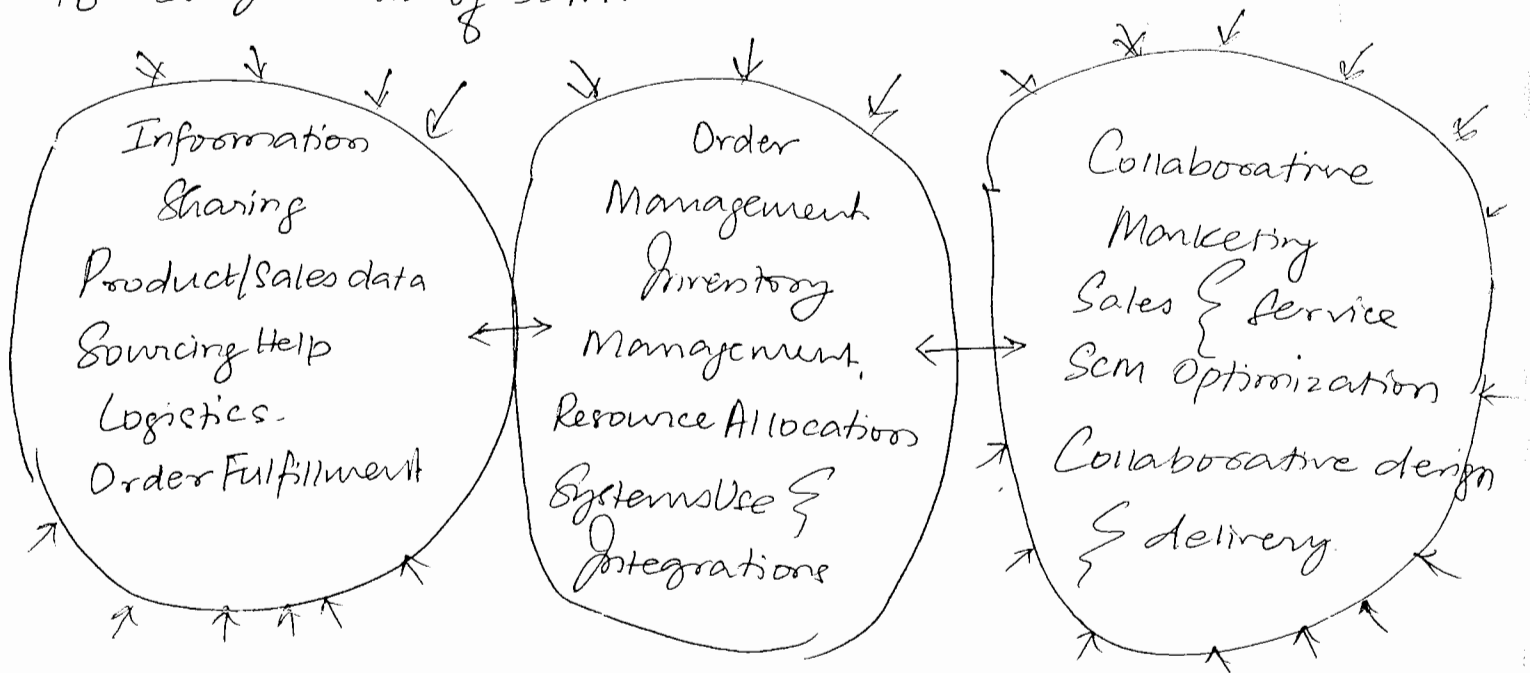 of
Information
Sharing
Product/Sales data
Sourcing Help
Logistics.
Order Fulfillment
Order
Management
Inventory
Management.
Resource Allocation
Systems Use &
Integrations
Collaborative
Marketing
Sales & Service
SCM Optimization
Collaborative design
& delivery.